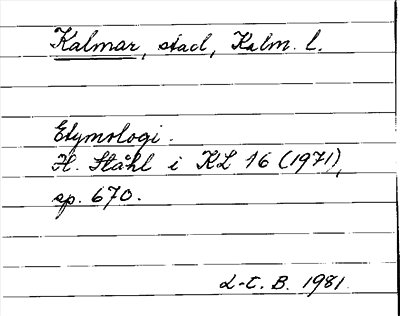 Kalmar, stad, Kalm. l.
Etymologi.
H. Ståhl i KL 16 (1971),
sp. 670.
L-E. B. 1981